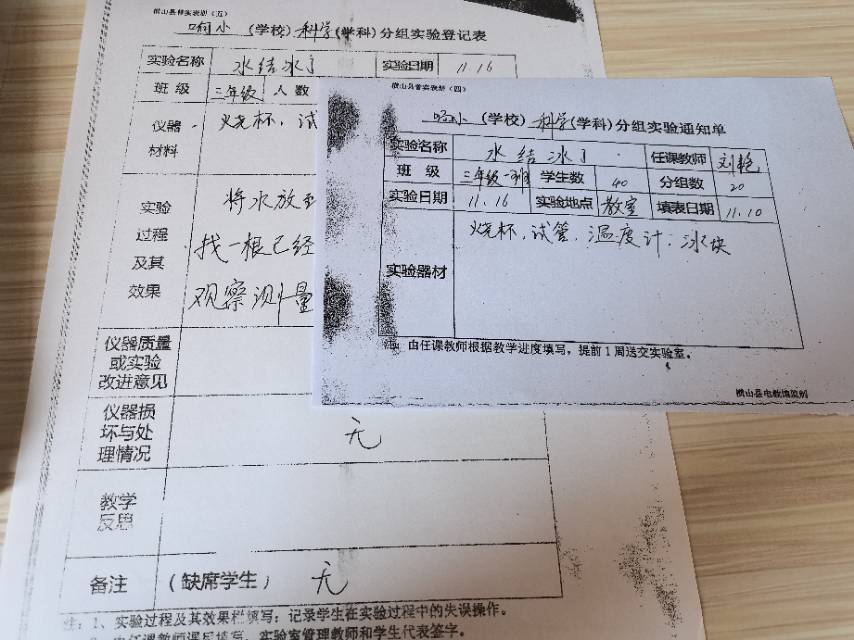 横山县普实表册（五）
响小（学校）科学（学科）分组实验登记表
实验名称 水结冰了 实验日期 11.16
班 级 三年级 人 数
仪器 材料 烧杯，试
实验 过程 及其 效果
将水放到
找一根已经
观察测量
仪器质量 或实验 改进意见
仪器损 坏与处 理情况 无
教学 反思
备注 （缺席学生） 无
注：1、实验过程及其效果栏填写：记录学生在实验过程中的失误操作。
2、由任课教师课后填写，实验室管理教师和学生代表签字。
横山县普实表册（四）
响小（学校）科学（学科）分组实验通知单
实验名称 水结冰了 任课教师 刘艳
班 级 三年级一班 学生数 40 分组数 20
实验日期 11.16 实验地点 教室 填表日期 11.10
实验器材 烧杯，试管，温度计．冰块
由任课教师根据教学进度填写，提前1周送交实验室。
横山县电教馆监制